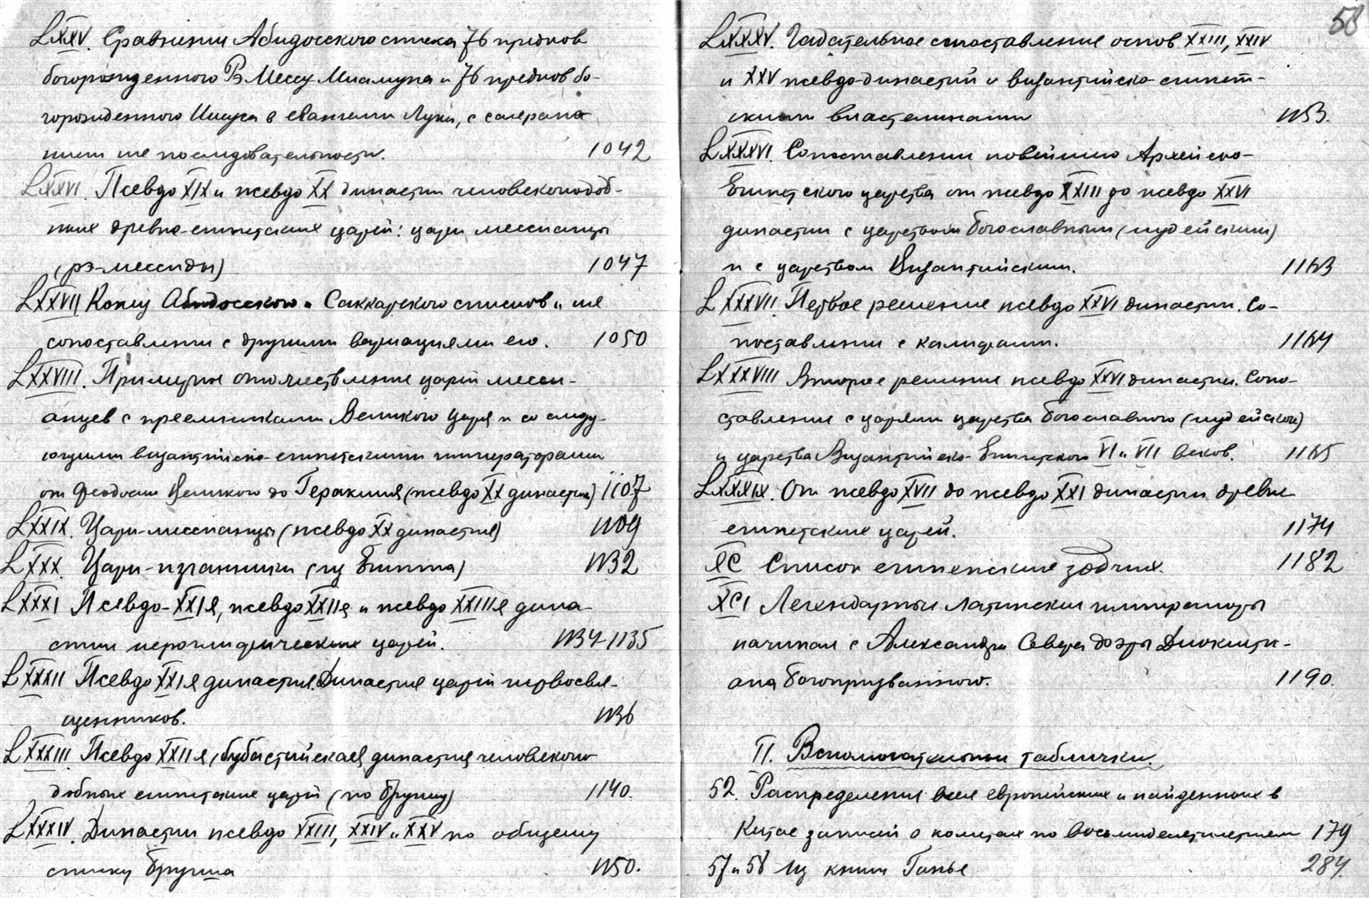 58
LXXV. Сравнении Абидосского списка 76 предков
богорожденного Рэ Мессу Миамуна и 76 предков бо-
горожденного Иисуса в евангелии Луки, с
их последовательности. 1042
LXXVI. Псевдо XIX и псевдо XX династии человекоподоб-
ных древне-египетских царей: цари мессианцы
(рэ-мессиды) 1047
LXXVII Конец Абидосского и Саккарского списков и их
сопоставлении с другими вариациями его. 1050
LXXVIII. Примерное отожествление царей месси-
анцев с преемниками Великого Царя и со следу-
ющими византийско-египетскими императорами
от Феодосия Великого до Геракния (псевдо XX династия) 1107
LXXIX. Цари-мессианцы (псевдо XX династия) 1109
LXXX. Цари-изгнанники (из Египта) 1132
LXXXI Псевдо-XXIя, псевдо XXIIя и псевдо XXIIIя дина-
стии иероглифических царей. 1134-1135
LXXXII Псевдо XXIя династия. Династия царей первосвя-
щенников. 1136
LXXXIII. Псевдо XXIIя (бубастийская) династия человекопо-
добных египетских царей (по Бругшу) 1140.
LXXXIV. Династии псевдо XXIII, XXIV и XXV по общему
списку Бругша 1150.
LXXXV. Гадательное сопоставление основ XXIII, XXIV
и XXV псевдо-династий с византийско-египет-
скими властелинами 1153.
LXXXVI. Сопоставлении новейшего Археи его-
Египетского царства от псевдо XXIII до псевдо XXVI
династии с царством богославным (иудейским)
и с царством Византийским. 1163
LXXXVII. Первое решение псевдо XXVI династии. Со-
поставлении с калифами. 1164
LXXXVIII Второе решение псевдо XXVI династии. Сопо-
ставление с царями царства богославного (иудейской)
и царства Византийско-Египетского VI и VII веков. 1165
LXXXIX. От псевдо XVII до псевдо XXI династии древне
египетских царей. 1174
XC Список египетских зодчих 1182
XCI Легендарные латинские императоры
начиная с Александра Севера до эры Диоклети-
ана богопризванного. 1190.
П. Вспомогательные таблички.
52. Распределения всех европейских и найденных в
Китае записей о кометах по восьмидесятилетиям 179
57 и 58 Из книги Ганье 284.